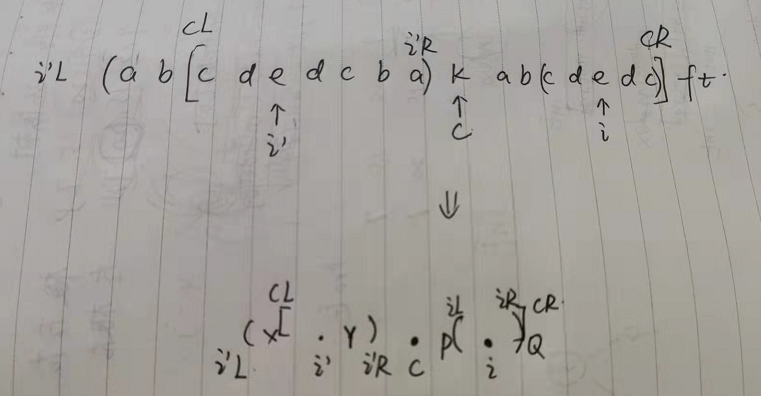 CL i'R CR
i'L (a b [c d e d c b a) k a b (c d e d c)] f t .
↑ ↑ ↑
i' c i
⇓
CL iL iR CR.
(x[ . Y) . P( . )]Q
i'L i' i'R c i